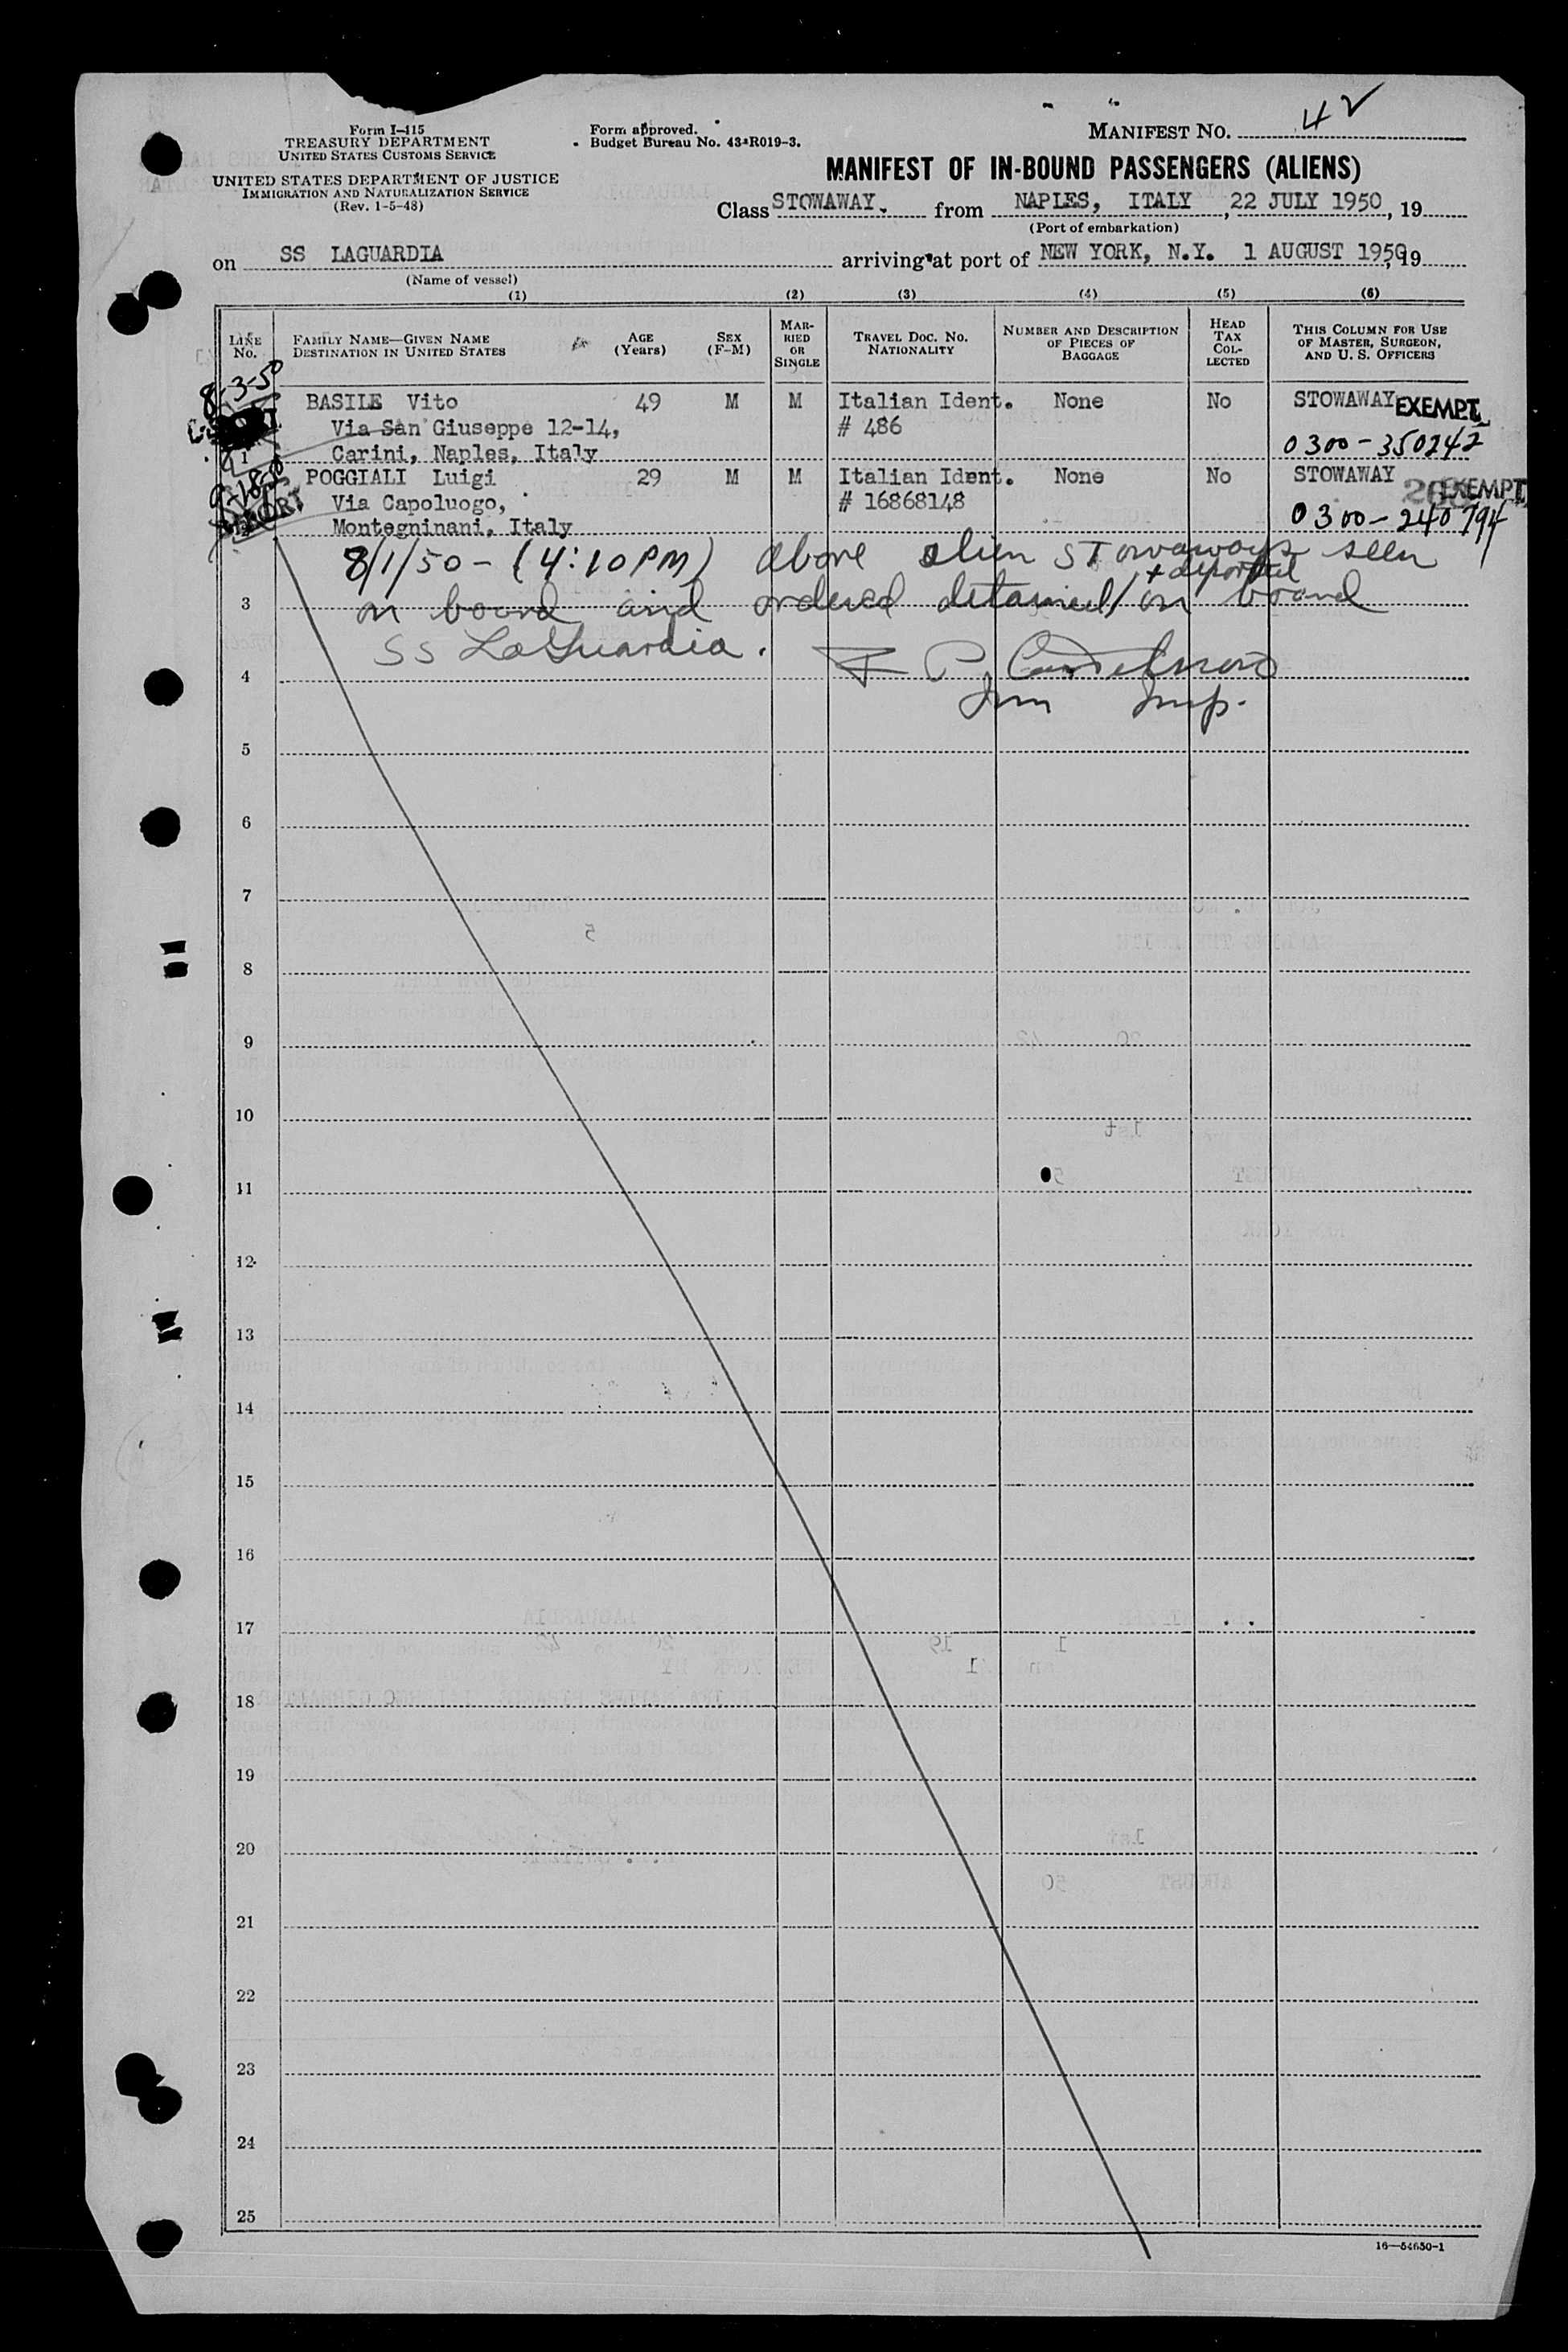 Form I-415
TREASURY DEPARTMENT
UNITED STATES CUSTOMS SERVICE
UNITED STATES DEPARTMENT OF JUSTICE
IMMIGRATION AND NATURALIZATION SERVICE
(Rev. 1-5-48)
Form approved.
Budget Bureau No. 43-R019-3.
MANIFEST NO. 42
MANIFEST OF IN-BOUND PASSENGERS (ALIENS)
Class STOWAWAY. from NAPLES, ITALY, 22 JULY 1950, 19
(Port of embarkation)
on SS LAGUARDIA arriving at port of NEW YORK, N.Y. 1 AUGUST 1950, 19
(Name of vessel)
(1) (2) (3) (4) (5) (6)
LINE No. FAMILY NAME—GIVEN NAME DESTINATION IN UNITED STATES AGE (Years) SEX (F-M) MARRIED OR SINGLE TRAVEL DOC. NO. NATIONALITY NUMBER AND DESCRIPTION OF PIECES OF BAGGAGE HEAD TAX COLLECTED THIS COLUMN FOR USE OF MASTER, SURGEON, AND U. S. OFFICERS
8-3-50
BASILE Vito 49 M M Italian Ident. None No STOWAWAY EXEMPT
Via San Giuseppe 12-14, # 486
1 Carini, Naples, Italy 0300-350242
9-18-50
POGGIALI Luigi 29 M M Italian Ident. None No STOWAWAY EXEMPT
Via Capoluogo, # 16868148
Montegninani, Italy 0300-240794
8/1/50 - (4:10 PM) above alien stowaways seen
3 on board and ordered detained + deported on board
SS LaGuardia. F P
4
Imm Insp.
5
6
7
8
9
10
11
12
13
14
15
16
17
18
19
20
21
22
23
24
25
16—54650-1